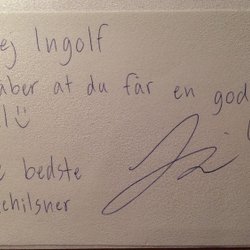 ej Ingolf
åber at du får en god
l☺
e bedste
ehilsner